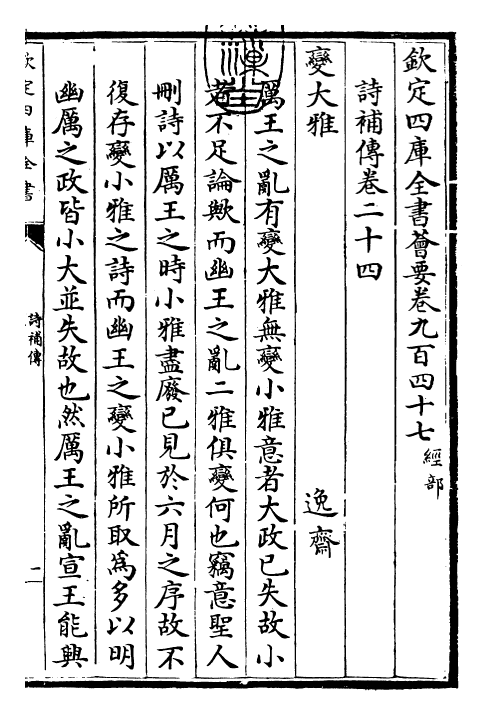 欽定四庫全書薈要卷九百四十七 經部
詩補傳卷二十四
變大雅 逸齋
厲王之亂有變大雅無變小雅意者大政已失故小
者不足論歟而幽王之亂二雅俱變何也竊意聖人
刪詩以厲王之時小雅盡廢已見於六月之序故不
復存變小雅之詩而幽王之變小雅所取為多以明
幽厲之政皆小大並失故也然厲王之亂宣王能興
欽定四庫全書
詩補傳